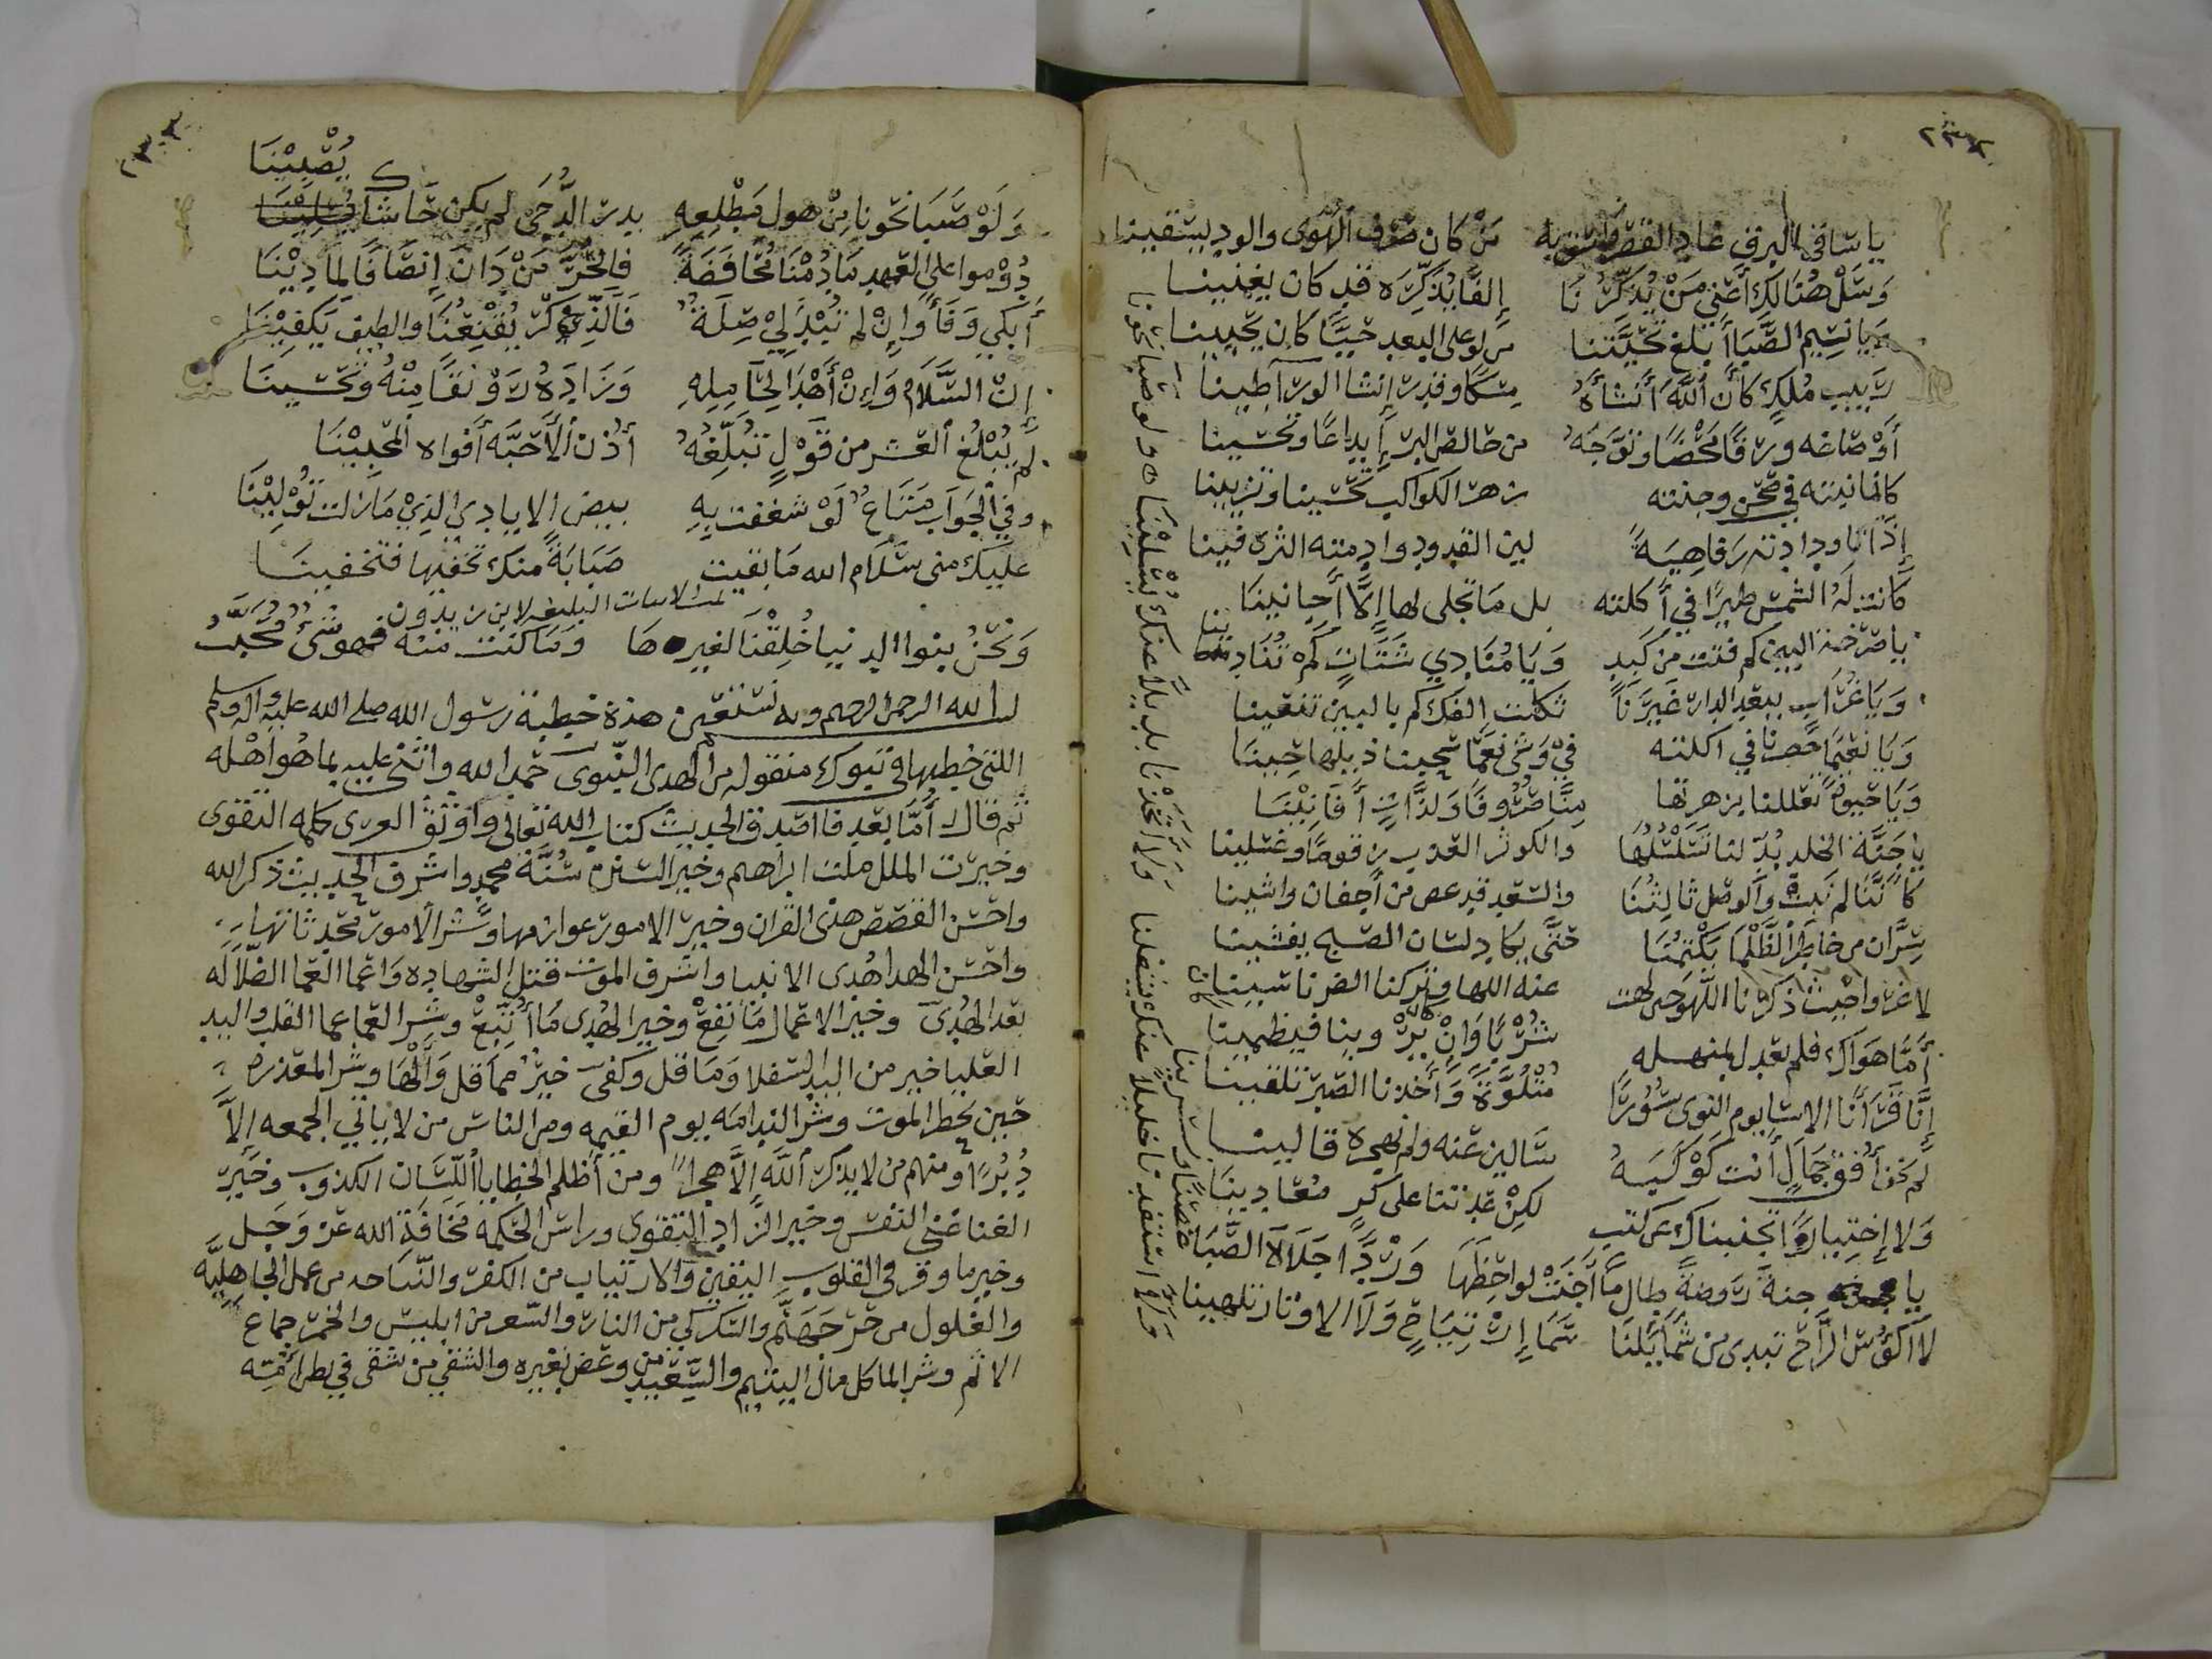 يا ساقي البرق غاد القصر واسق به من كان صرف الهوى والود يسقينا
وسل هنالك أعني من يذكرنا إلفا بذكره قد كان يغنينا
ويا نسيم الصبا أبلغ تحيتنا من لو على البعد حيا كان يحيينا
ربيب ملك كأن الله أنشأه مسكا وقدر إنشا الورا طينا
أو صاغه ورقا محضا وتوجه من خالص التبر إبداعا وتحسينا
كانما نبتته في صحن وجنته زهر الكواكب تحسينا وتزيينا
إذا تاود ادته رفاهية لين القدود وادمته البرى فينا
كانت له الشمس طيرا في أكلته بل ما تجلى لها إلا أحيانينا
يا صرخة البين كم فتت من كبد ويا منادي شتات كم تنادينا
ويا غراب ببعد الدار غيرنا ثكلت إلفك كم بالبين تنعينا
ويا نعيما خصرنا في اكلته في وشي نعما سحبنا ذيلها حينا
ويا حيوة تعللنا بزهرتها منا ضروفا ولذات أفانينا
يا جنة الخلد بدلنا تسلسلها والكوثر العذب زقوما وغسلينا
كأننا لم نبت والوصل ثالثنا والسعد قد غص من أجفان واشينا
سران من خاطر الظلما يكتمنا حتى يكاد لسان الصبح يفشينا
لا غرو احيث ذكرنا اللهو حين لهت عنه اللها وتركنا الصبر ناسينا
أما هواك فلم نعدل بمنهله شربا وإن كان يروينا فيظمينا
إنا قرأنا الاسا يوم النوى سورا متلوة وأخذنا الصبر تلقينا
لم نخف أفق جمال أنت كوكبه سالين عنه ولم نهجره قالينا
ولا إختيارا تجنبناك عن كثب لكن عدتنا على كره معادينا
يا جنة روضة طال ما أجنت لواحظها وردا جلاه الصبا غضا ونسرينا
لا أكؤس الراح تبدى من شمائلنا سما إرتياح ولا الاوتار تلهينا
ولا استفدنا خليلا عنك يشغلنا ولا اتخذنا بديلا عنك يسلينا
ولو صبا نحونا من هول مطلعه بدر الدجى لم يكن حاشاك يصبينا
دوموا على العهد ما دمنا محافظة فالحر من دان إنصافا لما دينا
أبكي وفا وإن لم تبذلي صلة فالذكر يقنعنا والطيف يكفينا
إن السلام وإن أهدا لحامله وزاده رونقا منه وتحسينا
لم يبلغ العشر من قول تبلغه أذن الأحبة أفواه المحبينا
وفي الجواب متاع لو شغفت به بيض الايادي الذي ما زلت تولينا
عليك مني سلام الله ما بقيت صبابة منك تخفيها فتخفينا
تمت الابيات البليغه لابن زيدون
ونحن بنوا الدنيا خلقنا لغيرها وما كنت منه فهو شيء محبب
بسم الله الرحمن الرحيم وبه نستعين هذه خطبة رسول الله صلى الله عليه واله وسلم
اللتي خطبها في تبوك منقوله من الهدى النبوى حمد الله واثنى عليه بما هو اهله
ثم قال أما بعد فا اصدق الحديث كتاب الله تعالى واوثق العرى كلمه التقوى
وخيرت الملل ملت ابراهيم وخير السنن سنة محمد واشرق الحديث ذكر الله
واحسن القصص هذى القران وخير الامور عوازمها وشر الأمور محدثاتها
واحسن الهدا هدى الانبيا واشرف الموت قتل الشهاده واعما العما الضلاله
بعد الهدى وخير الاعمال ما نفع وخير الهدى ما أتبع وشر العما عما القلب واليد
العليا خير من اليد السفلا وما قل وكفى خير مما قل وألها وشر المعذره
حين يحطر الموت وشر الندامه يوم القيمه ومن الناس من لا ياتي الجمعه إلا
دبرا ومنهم من لا يذكر الله إلا هجرا ومن أظلم الخطايا اللسان الكذوب وخير
الغنا غنى النفس وخير الزاد التقوى وراس الحكمه مخافة الله عز وجل
وخير ما وقر في القلوب اليقين والارتياب من الكفر والنياحه من عمل الجاهليه
والغلول من حر جهنم والسكر كي من النار والشعر من ابليس والخمر جماع
الاثم وشر الماكل مال اليتيم والسعيد من وعض بغيره والشقي من شقى في بطن أمه